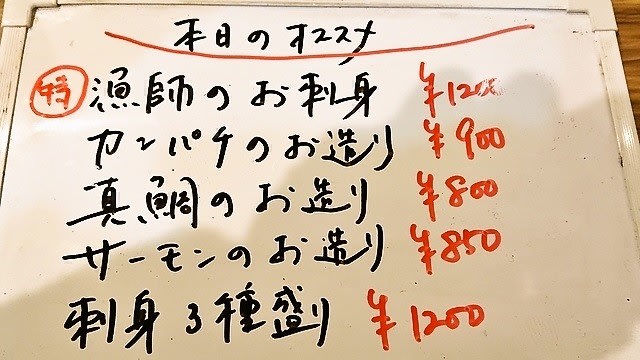 本日のオススメ
特 漁師のお刺身 ¥1200
カンパチのお造り ¥900
真鯛のお造り ¥800
サーモンのお造り ¥850
刺身3種盛り ¥1200